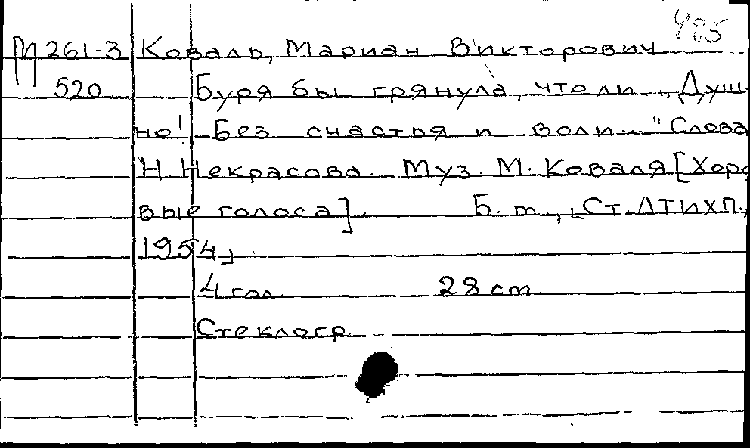 485
М 261-3 Коваль, Мариан Викторович
520 Буря бы грянула, что ли... „Душ-
но! без счастья и воли..." Слова
Н. Некрасова. Муз. М. Коваля [Хоро-
вые голоса]. Б. м., [Ст. ЛТИХП.,
1954]
4 гол. 28 cm
Стеклогр.